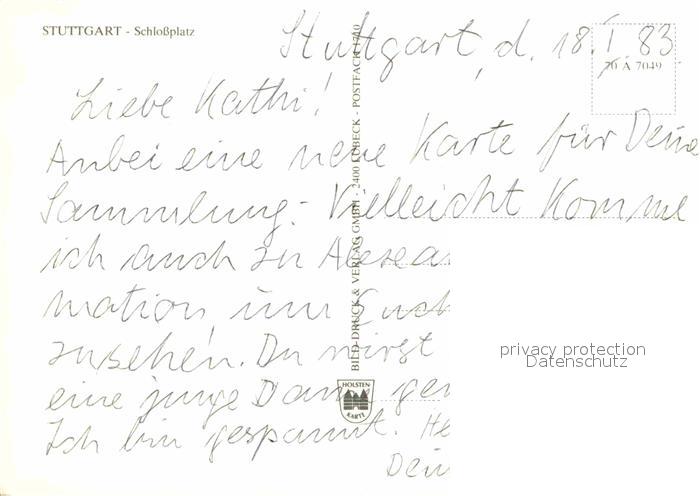 STUTTGART - Schloßplatz
Stuttgart, d. 18. I 83
70 A 7049
Liebe Kathi!
Anbei eine neue Karte für Deine
Sammlung. Vielleicht komme
ich auch zu
mation, um Euch
zusehen. Du wirst
eine junge Dam
Ich bin gespannt. He
Dein
BILD-DRUCK & VERLAG GMBH - 2400 LÜBECK - POSTFACH 1710
HOLSTEN
KARTE
privacy protection
Datenschutz